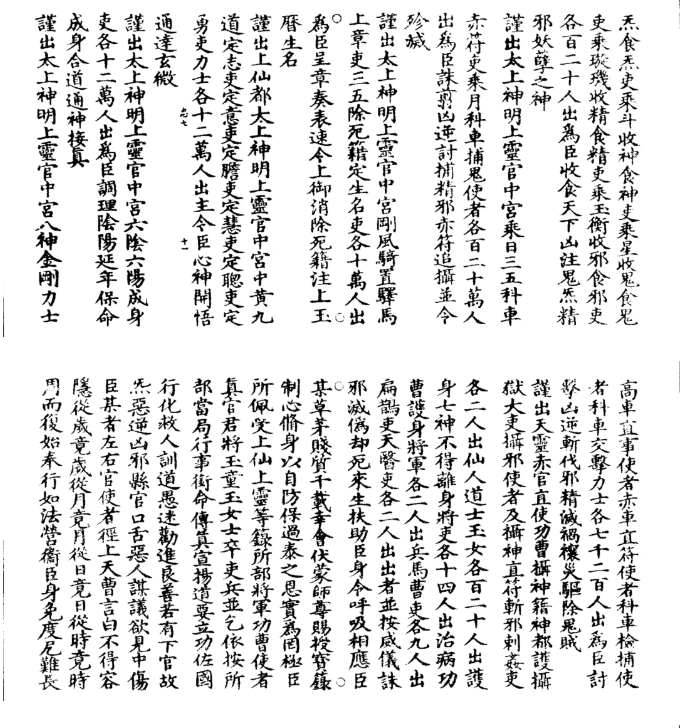 炁食炁吏乘斗收神食神吏乘星收鬼食鬼
吏乘璇璣收精食精吏乘玉衡收邪食邪吏
各百二十人出為臣收食天下凶注鬼炁精
邪妖孽之神
謹出太上神明上靈官中宮乘日三五科車
赤符吏乘月科車捕鬼使者各百二十萬人
出為臣誅剪凶逆討捕精邪赤符追攝並令
殄滅
謹出太上神明上靈官中宮剛風騎置驛馬
上章吏三五除死籍定生名吏各十萬人出
為臣呈章奏表速令上御消除死籍注上玉
曆生名
謹出上仙都太上神明上靈官中宮中黃九
道定志吏定意吏定膽吏定慧吏定聰吏定
勇吏力士各十二萬人出主令臣心神開悟
通達玄微
謹出太上神明上靈官中宮六陰六陽成身
吏各十二萬人出為臣調理陰陽延年保命
成身合道通神接真
謹出太上神明上靈官中宮八神金剛力士
高車直事使者赤車直符使者科車檢捕使
者科車交擊力士各七千二百人出為臣討
擊凶逆斬伐邪精滅禍禳災驅除鬼賊
謹出天靈赤官直使功曹攝神籍神都護攝
獄大吏攝邪使者及攝神直符斬邪刺姦吏
各二人出仙人道士玉女各百二十人出護
身七神不得離身將吏各十四人出治病功
曹護身將軍各二人出兵馬曹吏各九人出
扁鵲吏天醫吏各二人出出者並按威儀誅
邪滅偽却死來生扶助臣身令呼吸相應臣
某草茅賤質千載幸會伏蒙師尊賜授寶籙
制心脩身以自防保過泰之恩實為罔極臣
所佩受上仙上靈等籙所部將軍功曹使者
真官君將玉童玉女士卒吏兵並乞依按所
部當局行事銜命傳真宣揚道尊立功佐國
行化救人訓道愚迷勸進良善若有下官故
炁惡逆凶邪縣官口舌惡人謀議欲見中傷
臣某者左右官使者徑上天曹言白不得容
隱從歲竟歲從月竟月從日竟日從時竟時
周而復始奉行如法營衛臣身免度厄難長